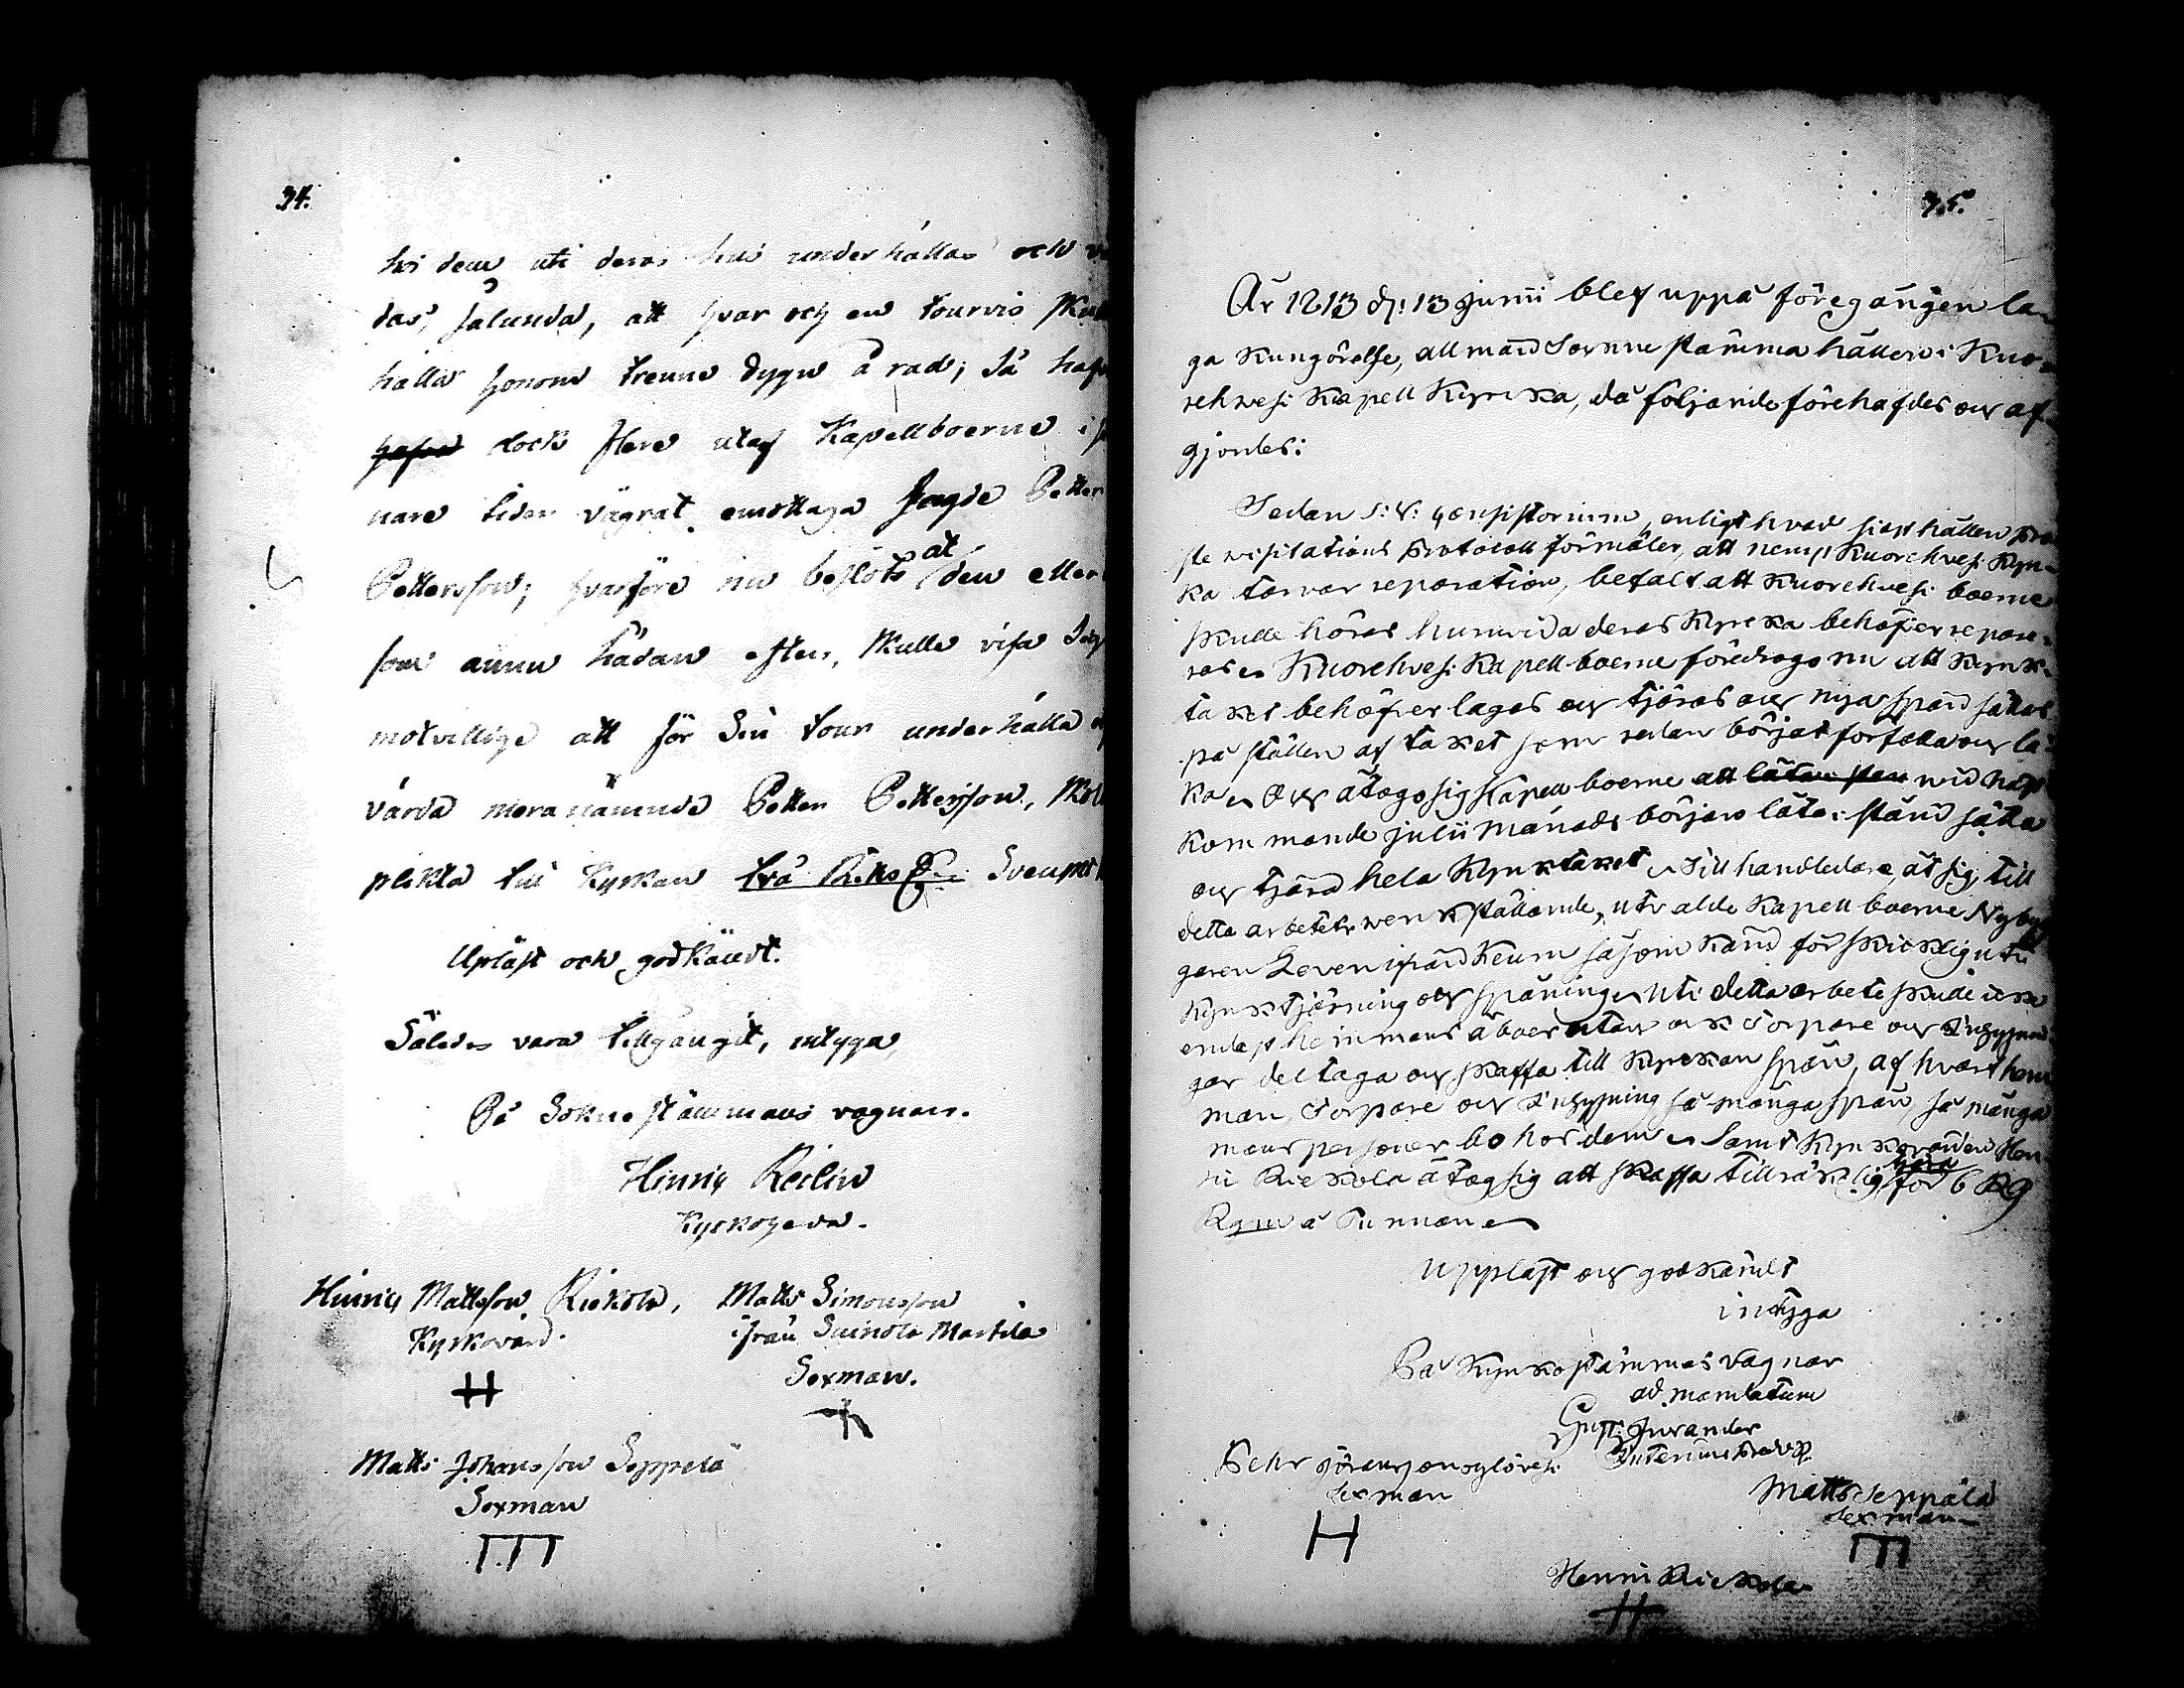 34.
hos dem uti deras hus underhållas och
das, sålunda, att hvar och en tourvis skul
hålla honom trenne dygn å rad; Så haf
hafva dock flere utaf Kapellboerne i
nare tider vägrat emottaga sagde Petter
Pettersson; hvarföre nu beslöts at den eller
som ännu hädan efter, skulle visa sig
motvillige att för Sin tour underhålla
vårda meranämnde Petter Pettersson, skol
plikta till Kyrkan två Riks Svenskt
Upläst och godkändt.
Således vara tillgångit, intyga,
På Sokne stämmans vägnar.
Hinric Reilin
Kyrkoherde.
Hinric Mattsson Riekola,
Kyrkovärd.
H
Matts Simonsson
ifrån Suinola Marttila
Sexman.
Matts Johansson Seppelä
Sexman
35.
År 1813 d: 13 Junii blef uppå föregången la-
ga Kungörelse, allmän Sockne stämma hållen i Kuo-
rehwesi Kapell Kyrcka, då följande förehafdes och af-
gjordes:
Sedan Consistorium, enligt hvad sist hållen Pro
ste visitations Protocoll förmäler, att nemt Kuorehvesi Kyr-
ka tarvar reparation, befalt att Kuorehvesi boerne
skulle höras huruvida deras Kyrcka behöfver repare-
ras Kuorehvesi Kapell-boerne föredrogo nu att Kyrck-
taket behöfver lagas och tjäras och nya spån sättas
på ställen af taket som redan börjat förfalla och lä-
ka Och åtogo sig Kapell boerne att låta wid näst
kommande julii månads början låta i stånd sätta
och tjära hela Kyrcktaket Till handledare åt sig till
detta arbetets werckställande, utvalde Kapell boerne Nybyg
garen Leven ifrån Keuru såsom känd för skicklig uti
Kyrcktjärning och spåning Uti detta arbete skulle icke
endast hemmans åboer utan ock Torpare och Inhysnin
gar deltaga och skaffa till Kyrckan spån, af hvart hem
man, Torpare och Inhysning så många spån, så många
mans personer bo hos dem Samt Kyrckovärden Hen
ric Riekola åtog sig att skaffa tillräcklig tjära för 6 R
Rgns a Tunnan
Uppläst och godkändt
intyga
På Kyrckostämmas vägnar
ad mandatum
Gust: Juvander
Interims
Pehr
Sexman
H
Matts Seppälä
Sexman
Henric Riekola
H